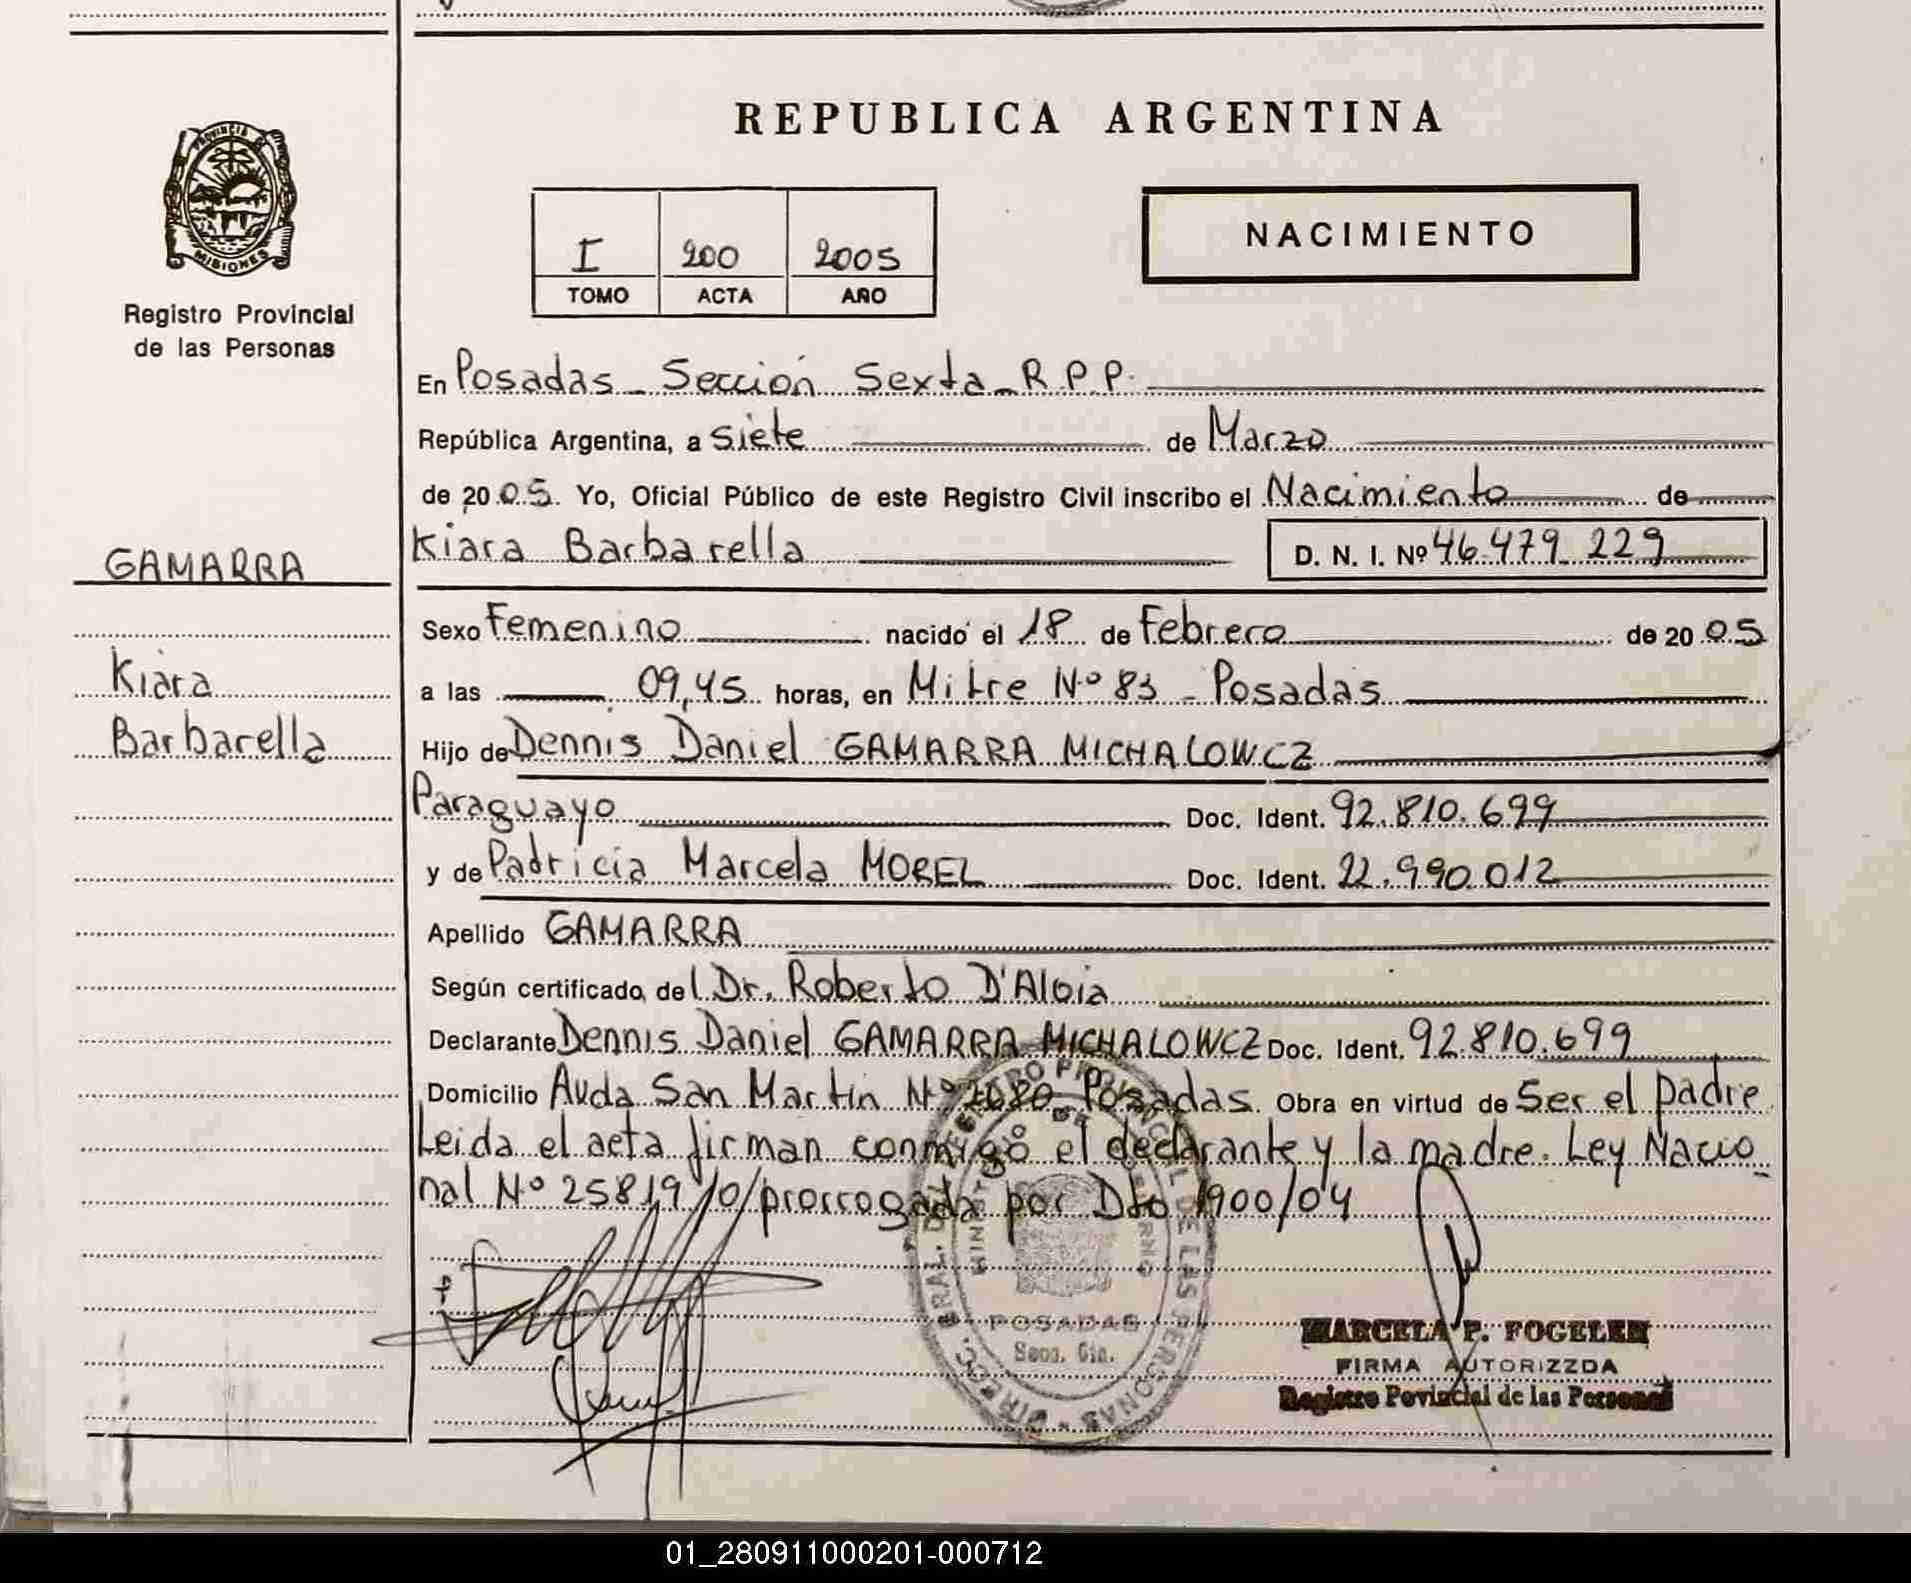 REPUBLICA ARGENTINA
PROVINCIA
MISIONES
Registro Provincial
de las Personas
I 200 2005
TOMO ACTA AÑO
NACIMIENTO
En Posadas - Sección Sexta - R.P.P.
República Argentina, a siete de Marzo
de 2005. Yo, Oficial Público de este Registro Civil inscribo el Nacimiento de
GAMARRA
Kiara Barbarella D. N. I. Nº 46.479.229
Sexo Femenino nacido el 18 de Febrero de 2005
Kiara
a las 09,45 horas, en Mitre Nº 83 - Posadas
Barbarella
Hijo de Dennis Daniel GAMARRA MICHALOWCZ
Paraguayo Doc. Ident. 92.810.699
y de Patricia Marcela MOREL Doc. Ident. 22.990.012
Apellido GAMARRA
Según certificado, del Dr. Roberto D'Aloia
Declarante Dennis Daniel GAMARRA MICHALOWCZ Doc. Ident. 92.810.699
Domicilio Avda San Martín Nº 2080 - Posadas Obra en virtud de Ser el padre
Leida el acta firman conmigo el declarante y la madre. Ley Nacio
nal Nº 25819 prorrogada por Dto 1900/04
POSADAS
Secc. 6ta.
MARCELA P. FOGELER
FIRMA AUTORIZZDA
Registro Povincial de las Personas
01_280911000201-000712